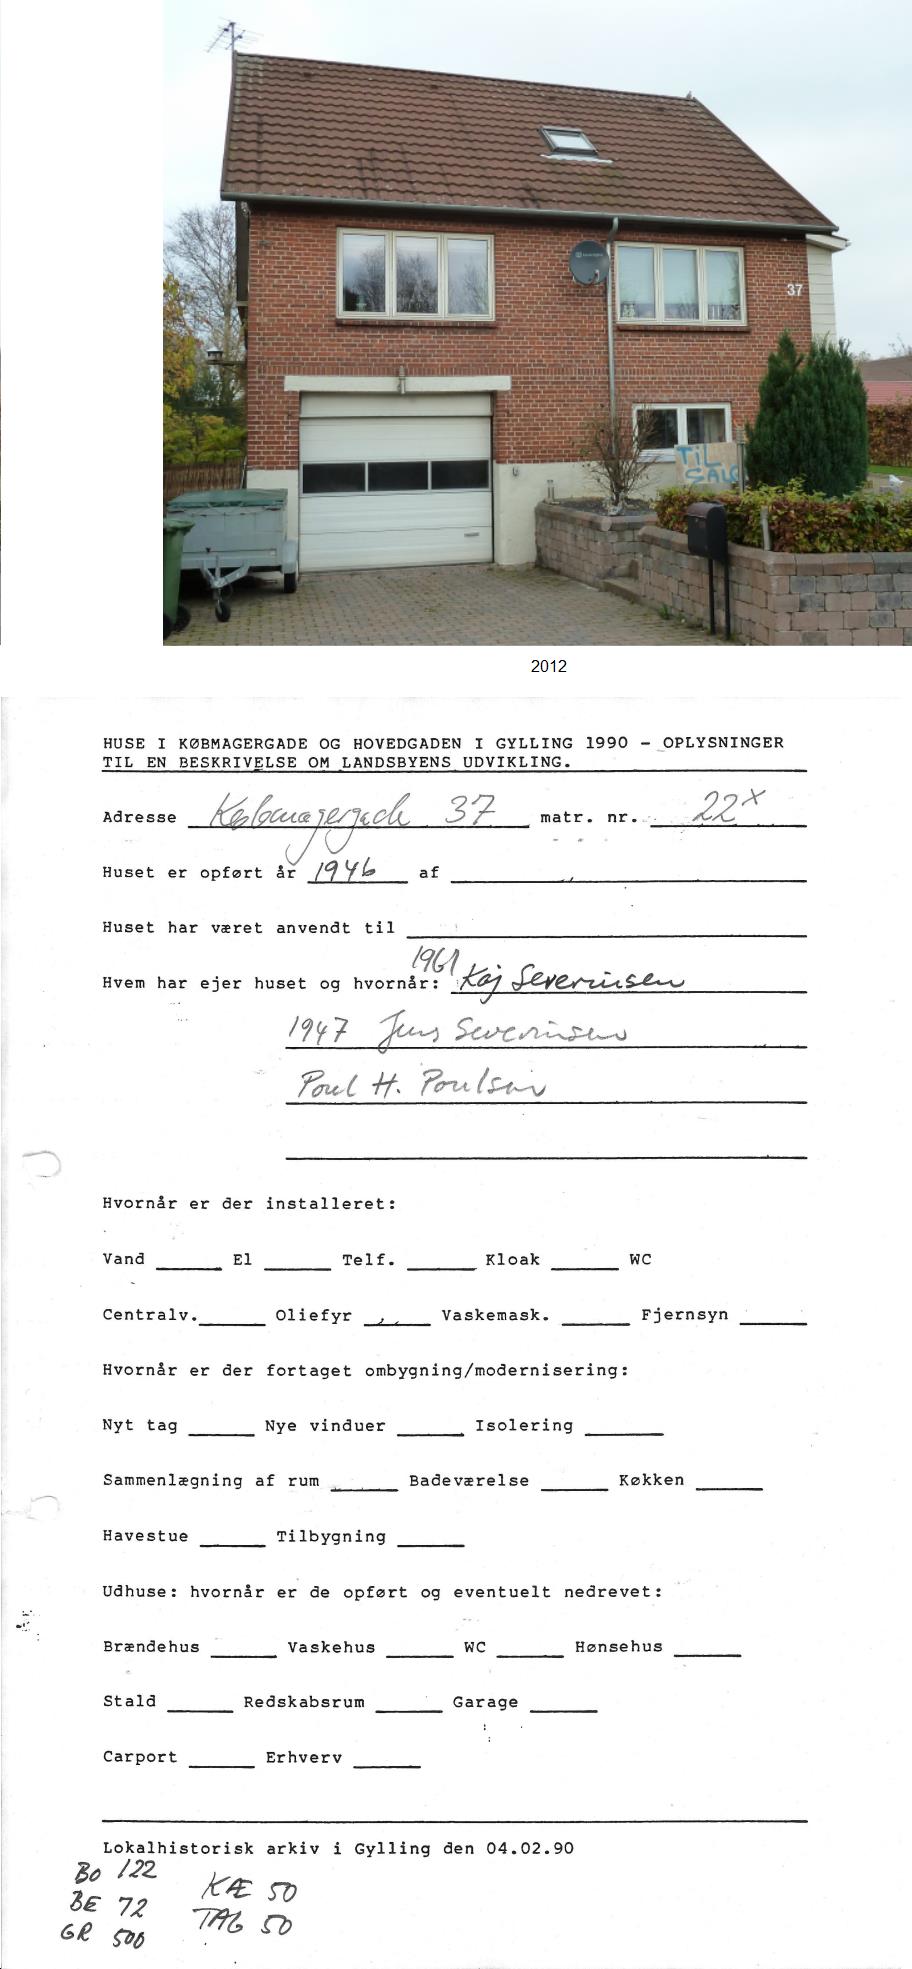 37
TiL
SALG
2012
HUSE I KØBMAGERGADE OG HOVEDGADEN I GYLLING 1990 - OPLYSNINGER
TIL EN BESKRIVELSE OM LANDSBYENS UDVIKLING.
Adresse Købmagergade 37 matr. nr. 22x
Huset er opført år 1946 af
Huset har været anvendt til
1961
Hvem har ejer huset og hvornår: Kaj Severinsen
1947 Jens Severinsen
Poul H. Poulsen
Hvornår er der installeret:
Vand El Telf. Kloak WC
Centralv. Oliefyr Vaskemask. Fjernsyn
Hvornår er der fortaget ombygning/modernisering:
Nyt tag Nye vinduer Isolering
Sammenlægning af rum Badeværelse Køkken
Havestue Tilbygning
Udhuse: hvornår er de opført og eventuelt nedrevet:
Brændehus Vaskehus WC Hønsehus
Stald Redskabsrum Garage
Carport Erhverv
Lokalhistorisk arkiv i Gylling den 04.02.90
BO 122
BE 72
GR 500
KÆ 50
TAG 50